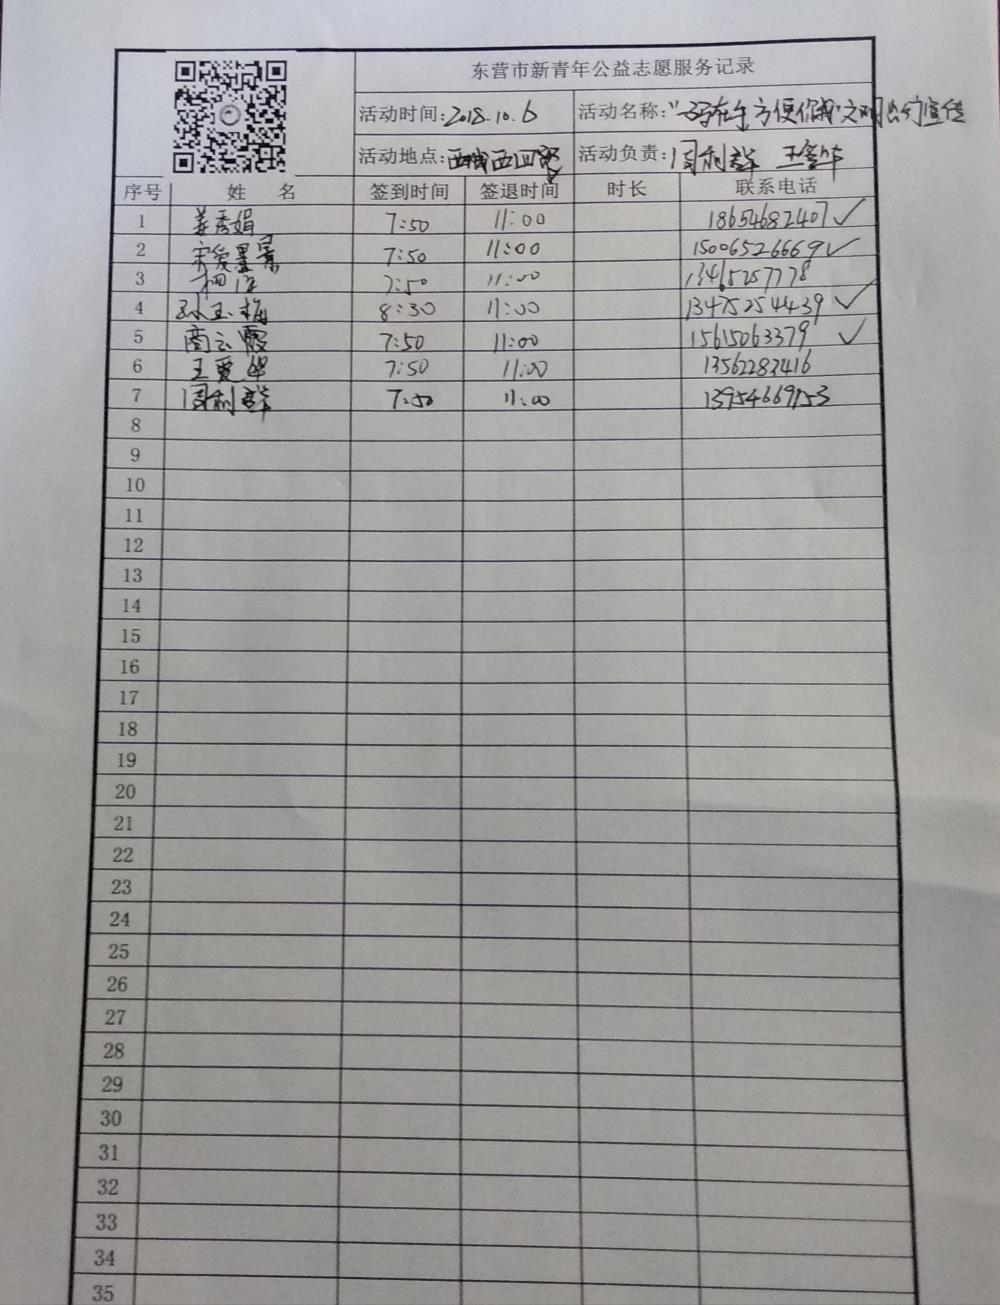 东营市新青年公益志愿服务记录
活动时间:2018.10.6 活动名称:"码在手方便你我"文明公约宣传
活动地点:西城西四路 活动负责:周利群 王爱华
序号 姓 名 签到时间 签退时间 时长 联系电话
1 姜秀娟 7:50 11:00 18654682407✓
2 宋爱景 7:50 11:00 15006526669✓
3 7:50 11:00 13465257778
4 孙玉梅 8:30 11:00 13475254439✓
5 商云霞 7:50 11:00 15615063379✓
6 王爱华 7:50 11:00 13562283416
7 周利群 7:50 11:00 13954669153
8
9
10
11
12
13
14
15
16
17
18
19
20
21
22
23
24
25
26
27
28
29
30
31
32
33
34
35